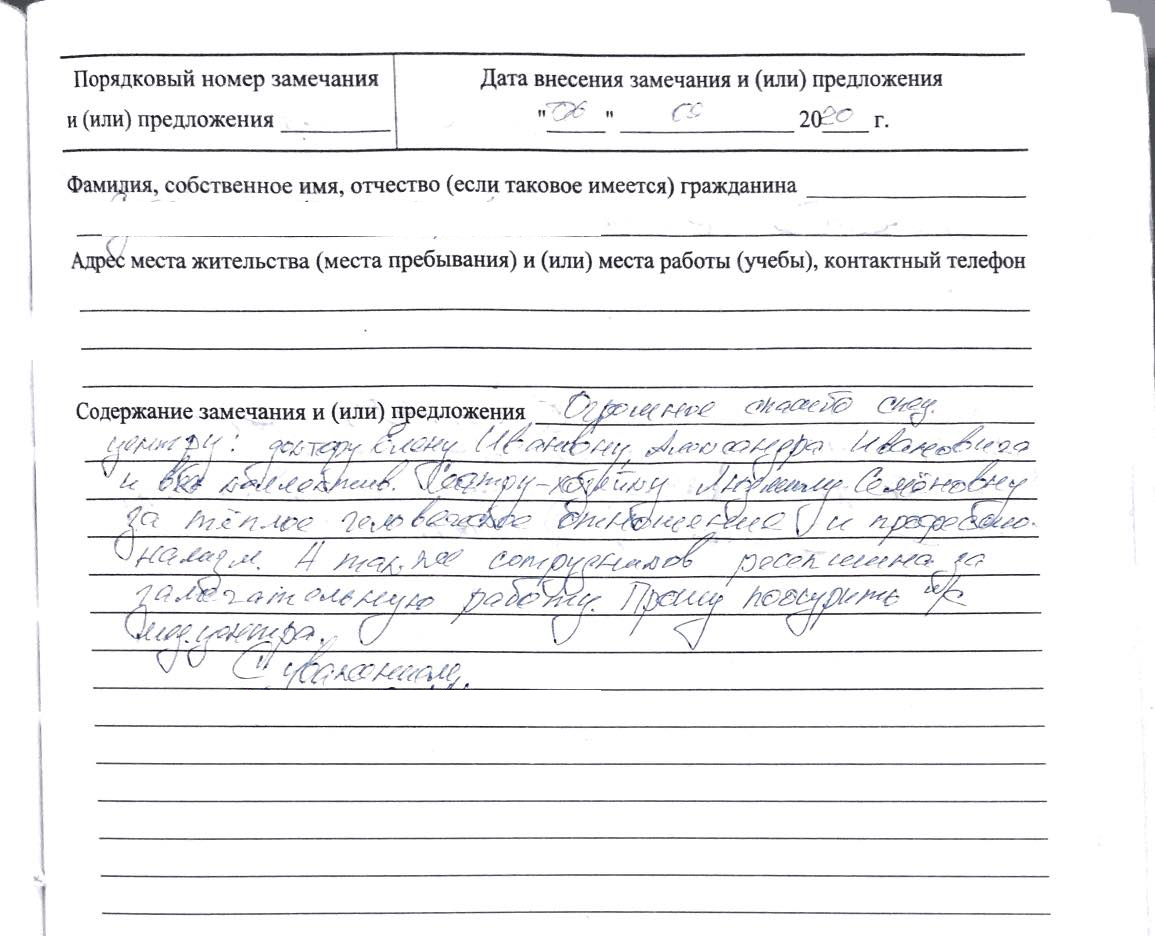 Порядковый номер замечания
и (или) предложения
Дата внесения замечания и (или) предложения
"06" 09 2020 г.
Фамилия, собственное имя, отчество (если таковое имеется) гражданина
Адрес места жительства (места пребывания) и (или) места работы (учебы), контактный телефон
Содержание замечания и (или) предложения Огромное спасибо спец.
центру: доктору Елену Ивановну, Александра Ивановича
и весь коллектив. Сестру-хозяйку Людмилу Семёновну
за тёплое человеческое отношение и професcио-
нализм. А так же сотрудников ресепшина за
замечательную работу. Прошу поощрить
мед.центра.
С уважением,